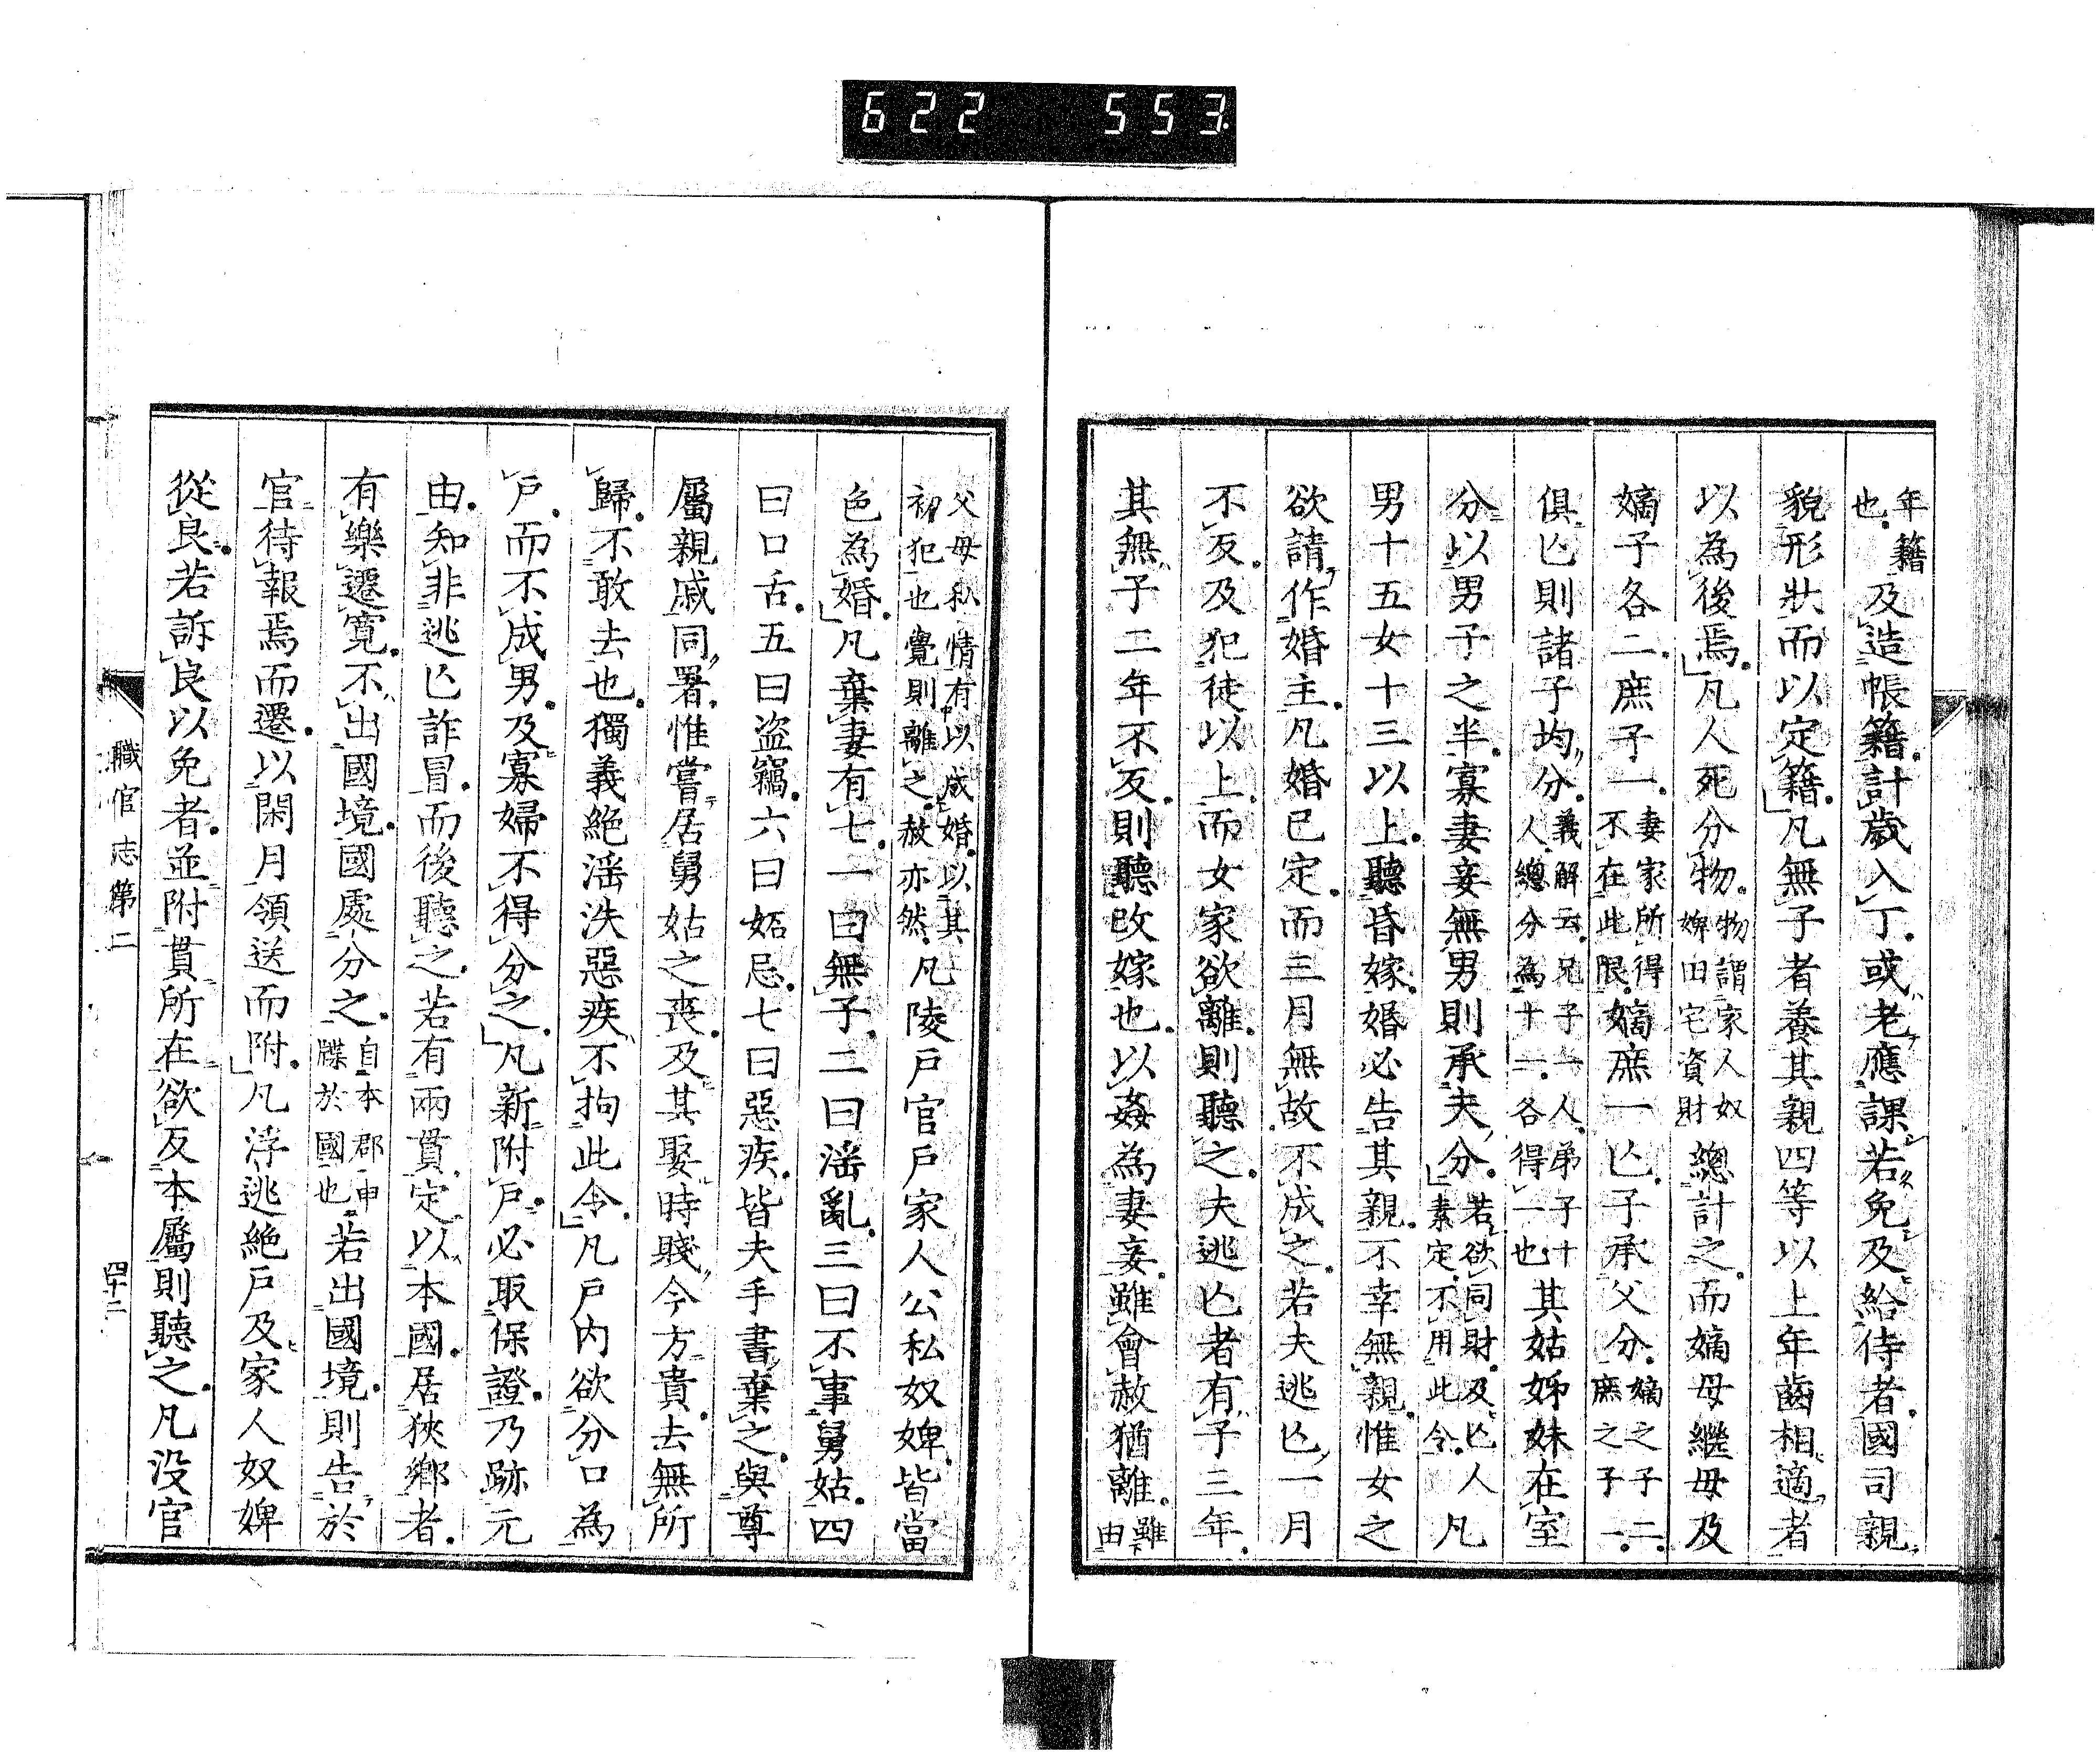 622 553
年籍也及造帳籍計歳入丁或老應課若免及給侍者國司親
貌形狀而以定籍凡無子者養其親四等以上年齒相適者
以為後焉凡人死分物物謂家人奴婢田宅資財總計之而嫡母繼母及
嫡子各二庶子一妻家所得不在此限嫡庶一亾子承父分嫡之子二庶之子一
俱亾則諸子均分義解云兄子一人弟子十人總分為十一各得一也其姑姊妹在室
分以男子之半寡妻妾無男則承夫分若欲同財及亾人素定不用此令凡
男十五女十三以上聽昏嫁婚必告其親不幸無親惟女之
欲請作婚主凡婚已定而三月無故不成之若夫逃亾一月
不反及犯徒以上而女家欲離則聽之夫逃亾者有子三年
其無子二年不反則聽改嫁也以姦為妻妾雖會赦猶離雖由
父母私情有以成婚以其初犯也覺則離之赦亦然凡陵戶官戶家人公私奴婢皆當
色為婚凡棄妻有七一曰無子二曰淫亂三曰不事舅姑四
曰口舌五曰盜竊六曰妬忌七曰惡疾皆夫手書棄之與尊
屬親戚同署惟嘗居舅姑之喪及其娶時賤今方貴去無所
歸不敢去也獨義絶淫泆惡疾不拘此令凡戶内欲分口為
戶而不成男及寡婦不得分之凡新附戶必取保證乃跡元
由知非逃亾詐冒而後聽之若有兩貫定以本國居狹鄉者
有樂遷寬不出國境國處分之自本郡申牒於國也若出國境則告於
官待報焉而遷以閑月領送而附凡浮逃絶戶及家人奴婢
從良若訴良以免者並附貫所在欲反本屬則聽之凡没官
職官志第二
四十二